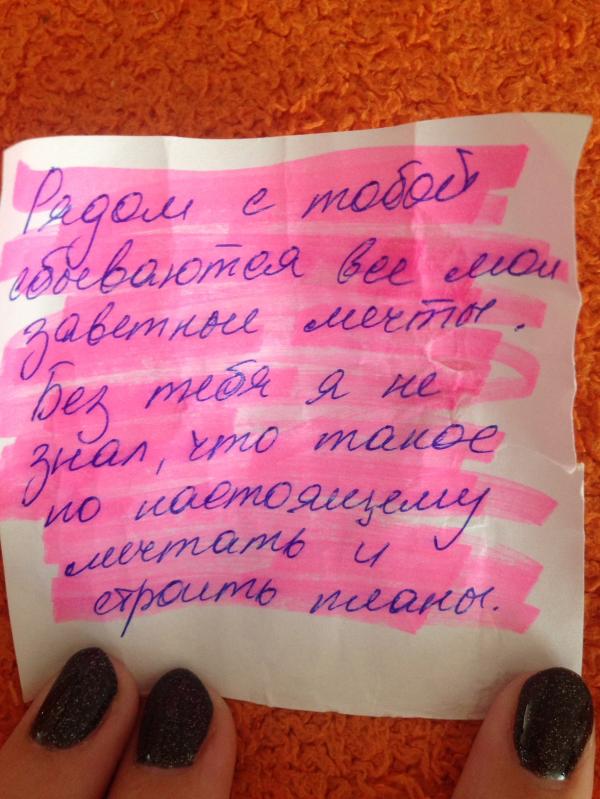 Рядом с тобой
сбываются все мои
заветные мечты.
Без тебя я не
знал, что такое
по настоящему
мечтать и
строить планы.